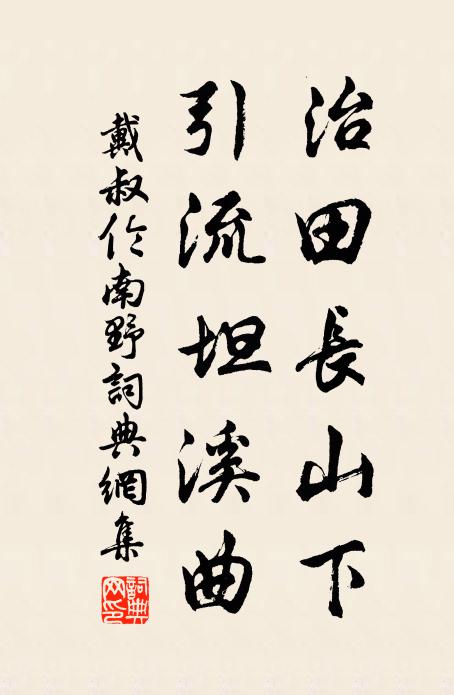 治田長山下
引流坦溪曲
戴叔伦南野詞典網集
詞典
网印